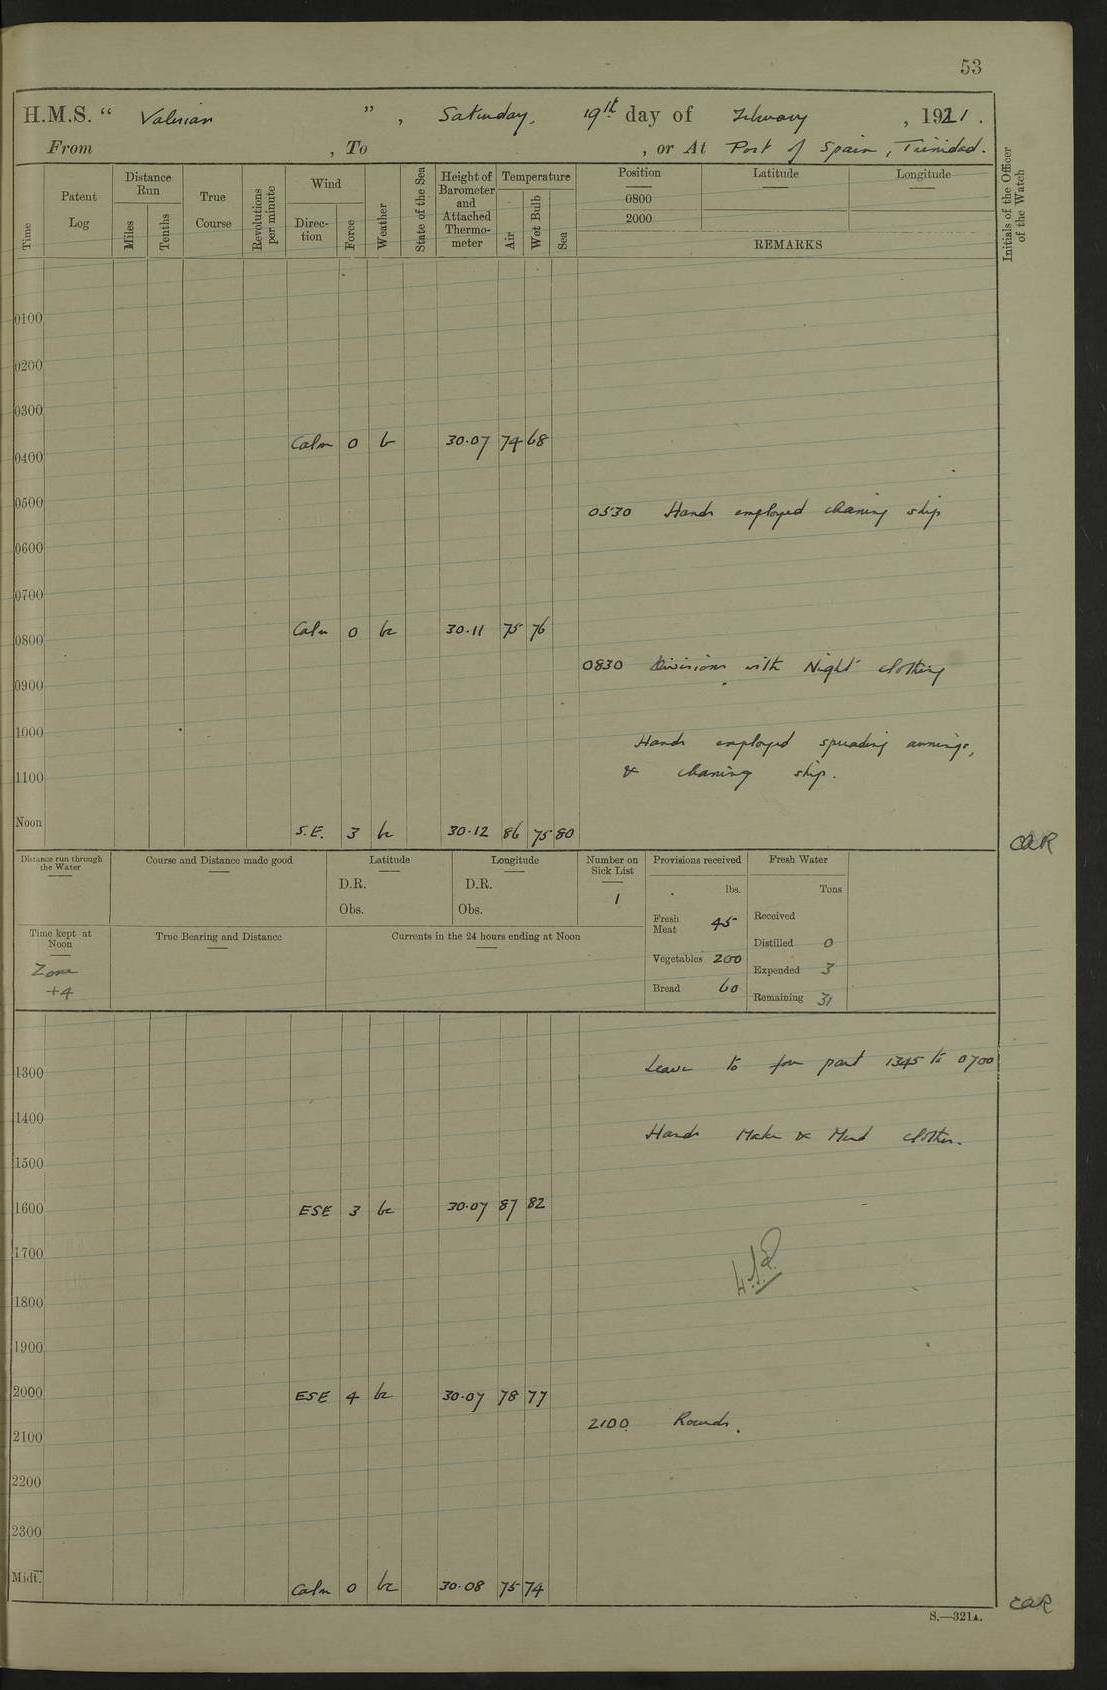 53
H.M.S. “ Valerian ” , Saturday, 19th day of February , 1921 .
From , To , or At Port of Spain, Trinidad.
Time
Patent Log
Distance Run
Miles
Tenths
True Course
Revolutions per minute
Wind
Direc-tion
Force
Weather
State of the Sea
Height of Barometer and Attached Thermo-meter
Temperature
Air
Wet Bulb
Sea
Position
0800
2000
Latitude
Longitude
REMARKS
Initials of the Officer of the Watch
0100
0200
0300
0400 Calm 0 b 30.07 74 68
0500
0530 Hands employed cleaning ship
0600
0700
0800 Calm 0 bc 30.11 75 76
0830 Divisions with Night clothing
0900
1000
Hands employed spreading awnings,
& cleaning ship.
1100
Noon S.E. 3 bc 30.12 86 75 80
CAR
Distance run through the Water
Course and Distance made good
Latitude
D.R.
Obs.
Longitude
D.R.
Obs.
Number on Sick List
1
Provisions received
lbs.
Fresh Meat 45
Vegetables 200
Bread 60
Fresh Water
Tons
Received
Distilled 0
Expended 3
Remaining 31
Time kept at Noon
Zone +4
True Bearing and Distance
Currents in the 24 hours ending at Noon
Leave to for part 1345 to 0700
1300
1400
Hands Make & Mend clothes.
1500
1600 ESE 3 bc 30.07 87 82
1700
1800
1900
2000 ESE 4 bc 30.07 78 77
2100 Rounds.
2100
2200
2300
Midt. Calm 0 bc 30.08 75 74
CAR
S.—321A.